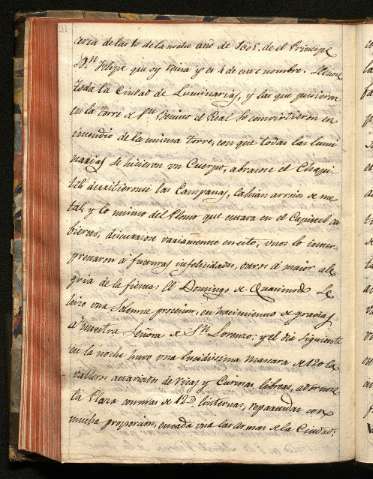 cerca de las 10 de la noche año de 1605. de el Principe
Dn. Felipe que oy Reina y es 4 de este nombre.
toda la Ciudad de Luminarias, y las que pusieron
en la torre de Sn. Benito el Real se convirtieron en
incendio de la misma torre, con que todas las lumi
narias se hicieron un Cuerpo, abrasose el Chapi
tel derritieronse las Campanas,
tal y lo mismo del Plomo que estava en el Capitel cu
bierto, discurrieron variamente en esto, unos lo inter
pretaron á futuras infelicidades, otros á maior ale
gria de la fiesta. El Domingo de Quasimodo se
hizo una solemne procesion, en hacimiento de gracias
á Nuestra Señora de Sn. Lorenzo, y el dia siguiente
en la noche huvo una lucidissima mascara de
valleros de ricas y Curiosas libreas,
la Plaza con mas de linternas, repartidas con
mucha proporcion, en cada una las armas de la Ciudad,